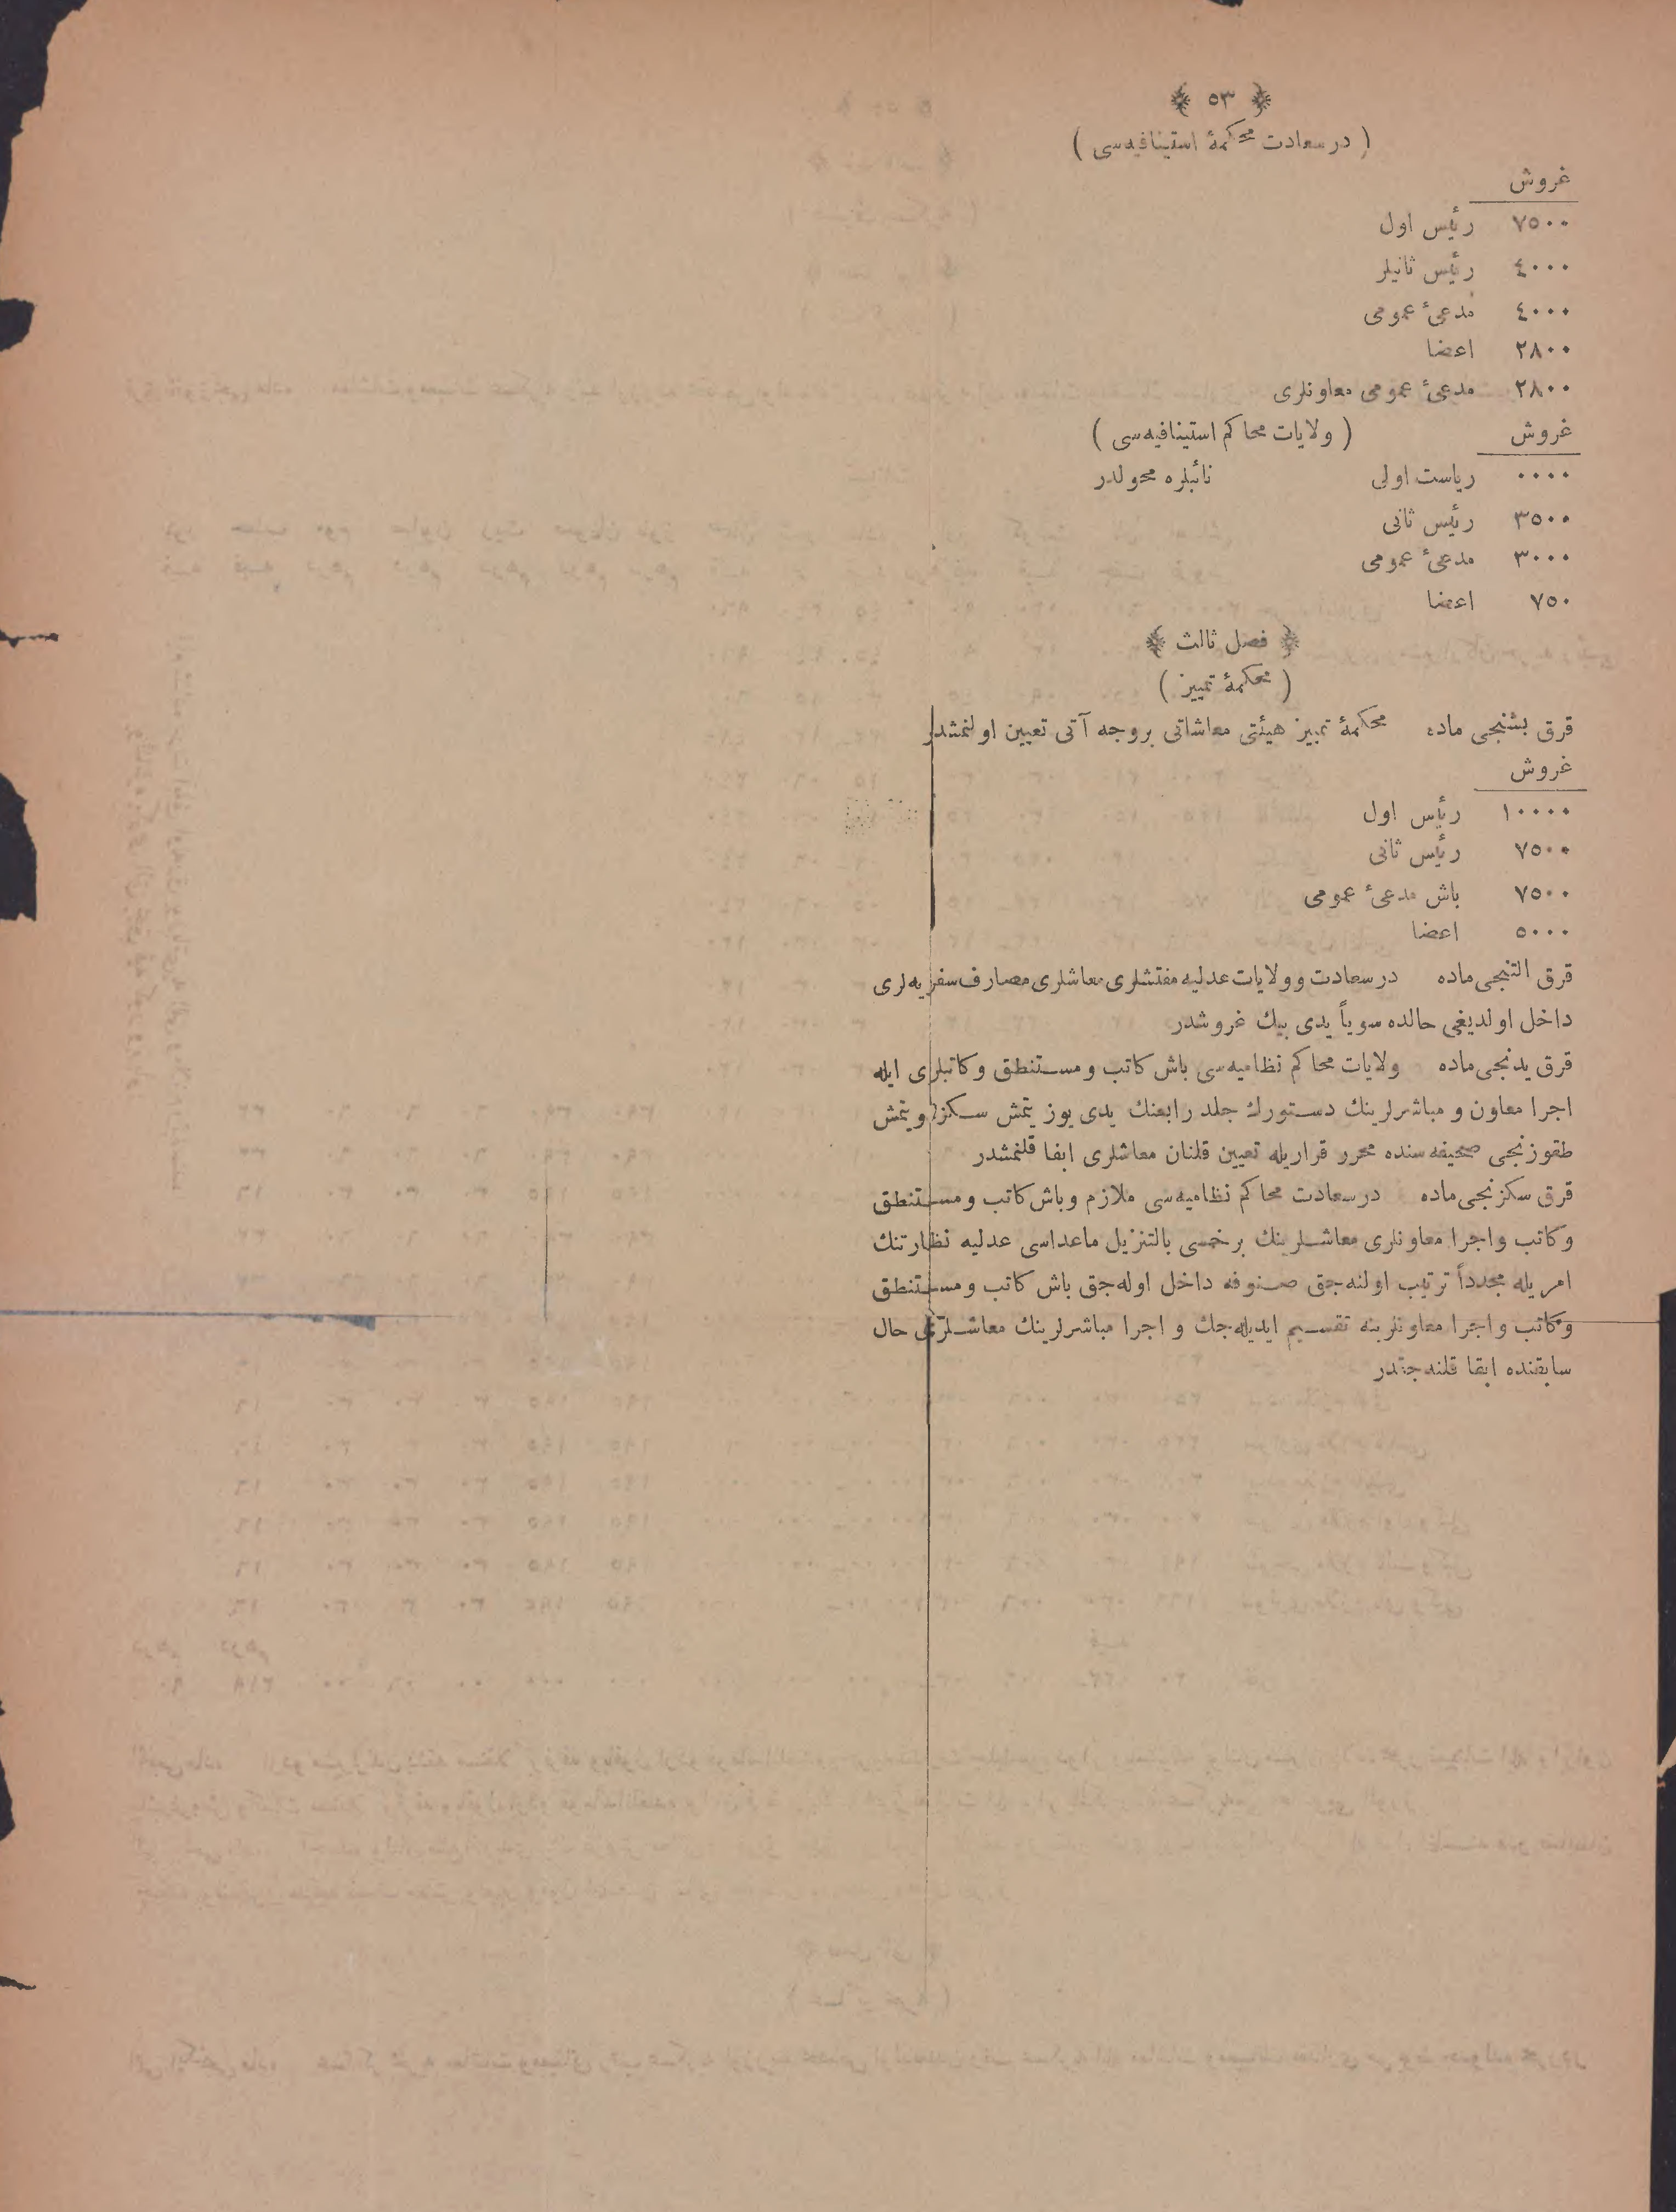 ﴿ ٥٣ ﴾
( درسعادت محكمۀ استينافيه‌سى )
غروش
٧٥٠٠ رئيس اول
٤٠٠٠ رئيس ثانيلر
٤٠٠٠ مدعئ عمومى
٢٨٠٠ اعضا
٢٨٠٠ مدعئ عمومى معاونلرى
غروش ( ولايات محاكم استينافيه‌سى )
٠٠٠٠ رياست اولى نائبلره محولدر
٣٥٠٠ رئيس ثانى
٣٠٠٠ مدعئ عمومى
٧٥٠ اعضا
﴿ فصل ثالث ﴾
( محكمۀ تمييز )
قرق بشنجى ماده محكمۀ تمييز هيئتى معاشاتى بروجه آتى تعيين اولنمشدر
غروش
١٠٠٠٠ رئيس اول
٧٥٠٠ رئيس ثانى
٧٥٠٠ باش مدعئ عمومى
٥٠٠٠ اعضا
قرق التنجى ماده درسعادت وولايات عدليه مفتشلرى معاشلرى مصارف سفريه‌لرى
داخل اولديغى حالده سوياً يدى بيك غروشدر
قرق يدنجى ماده ولايات محاكم نظاميه‌سى باش كاتب ومستنطق وكاتبلرى ايله
اجرا معاون و مباشرلرينك دستورك جلد رابعنك يدى يوز يتمش سكز ويتمش
طقوزنجى صحيفه‌سنده محرر قراريله تعيين قلنان معاشلرى ابقا قلنمشدر
قرق سكزنجى ماده درسعادت محاكم نظاميه‌سى ملازم وباش كاتب ومستنطق
وكاتب واجرا معاونلرى معاشلرينك برخمسى بالتنزيل ماعداسى عدليه نظارتنك
امريله مجدداً ترتيب اولنه‌جق صنوفه داخل اوله‌جق باش كاتب ومستنطق
وكاتب واجرا معاونلرينه تقسيم ايديله‌جك و اجرا مباشرلرينك معاشلرى حال
سابقنده ابقا قلنه‌جقدر